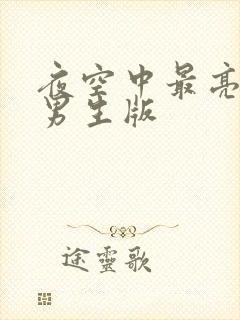 夜空中最亮
男生版
途靈歌